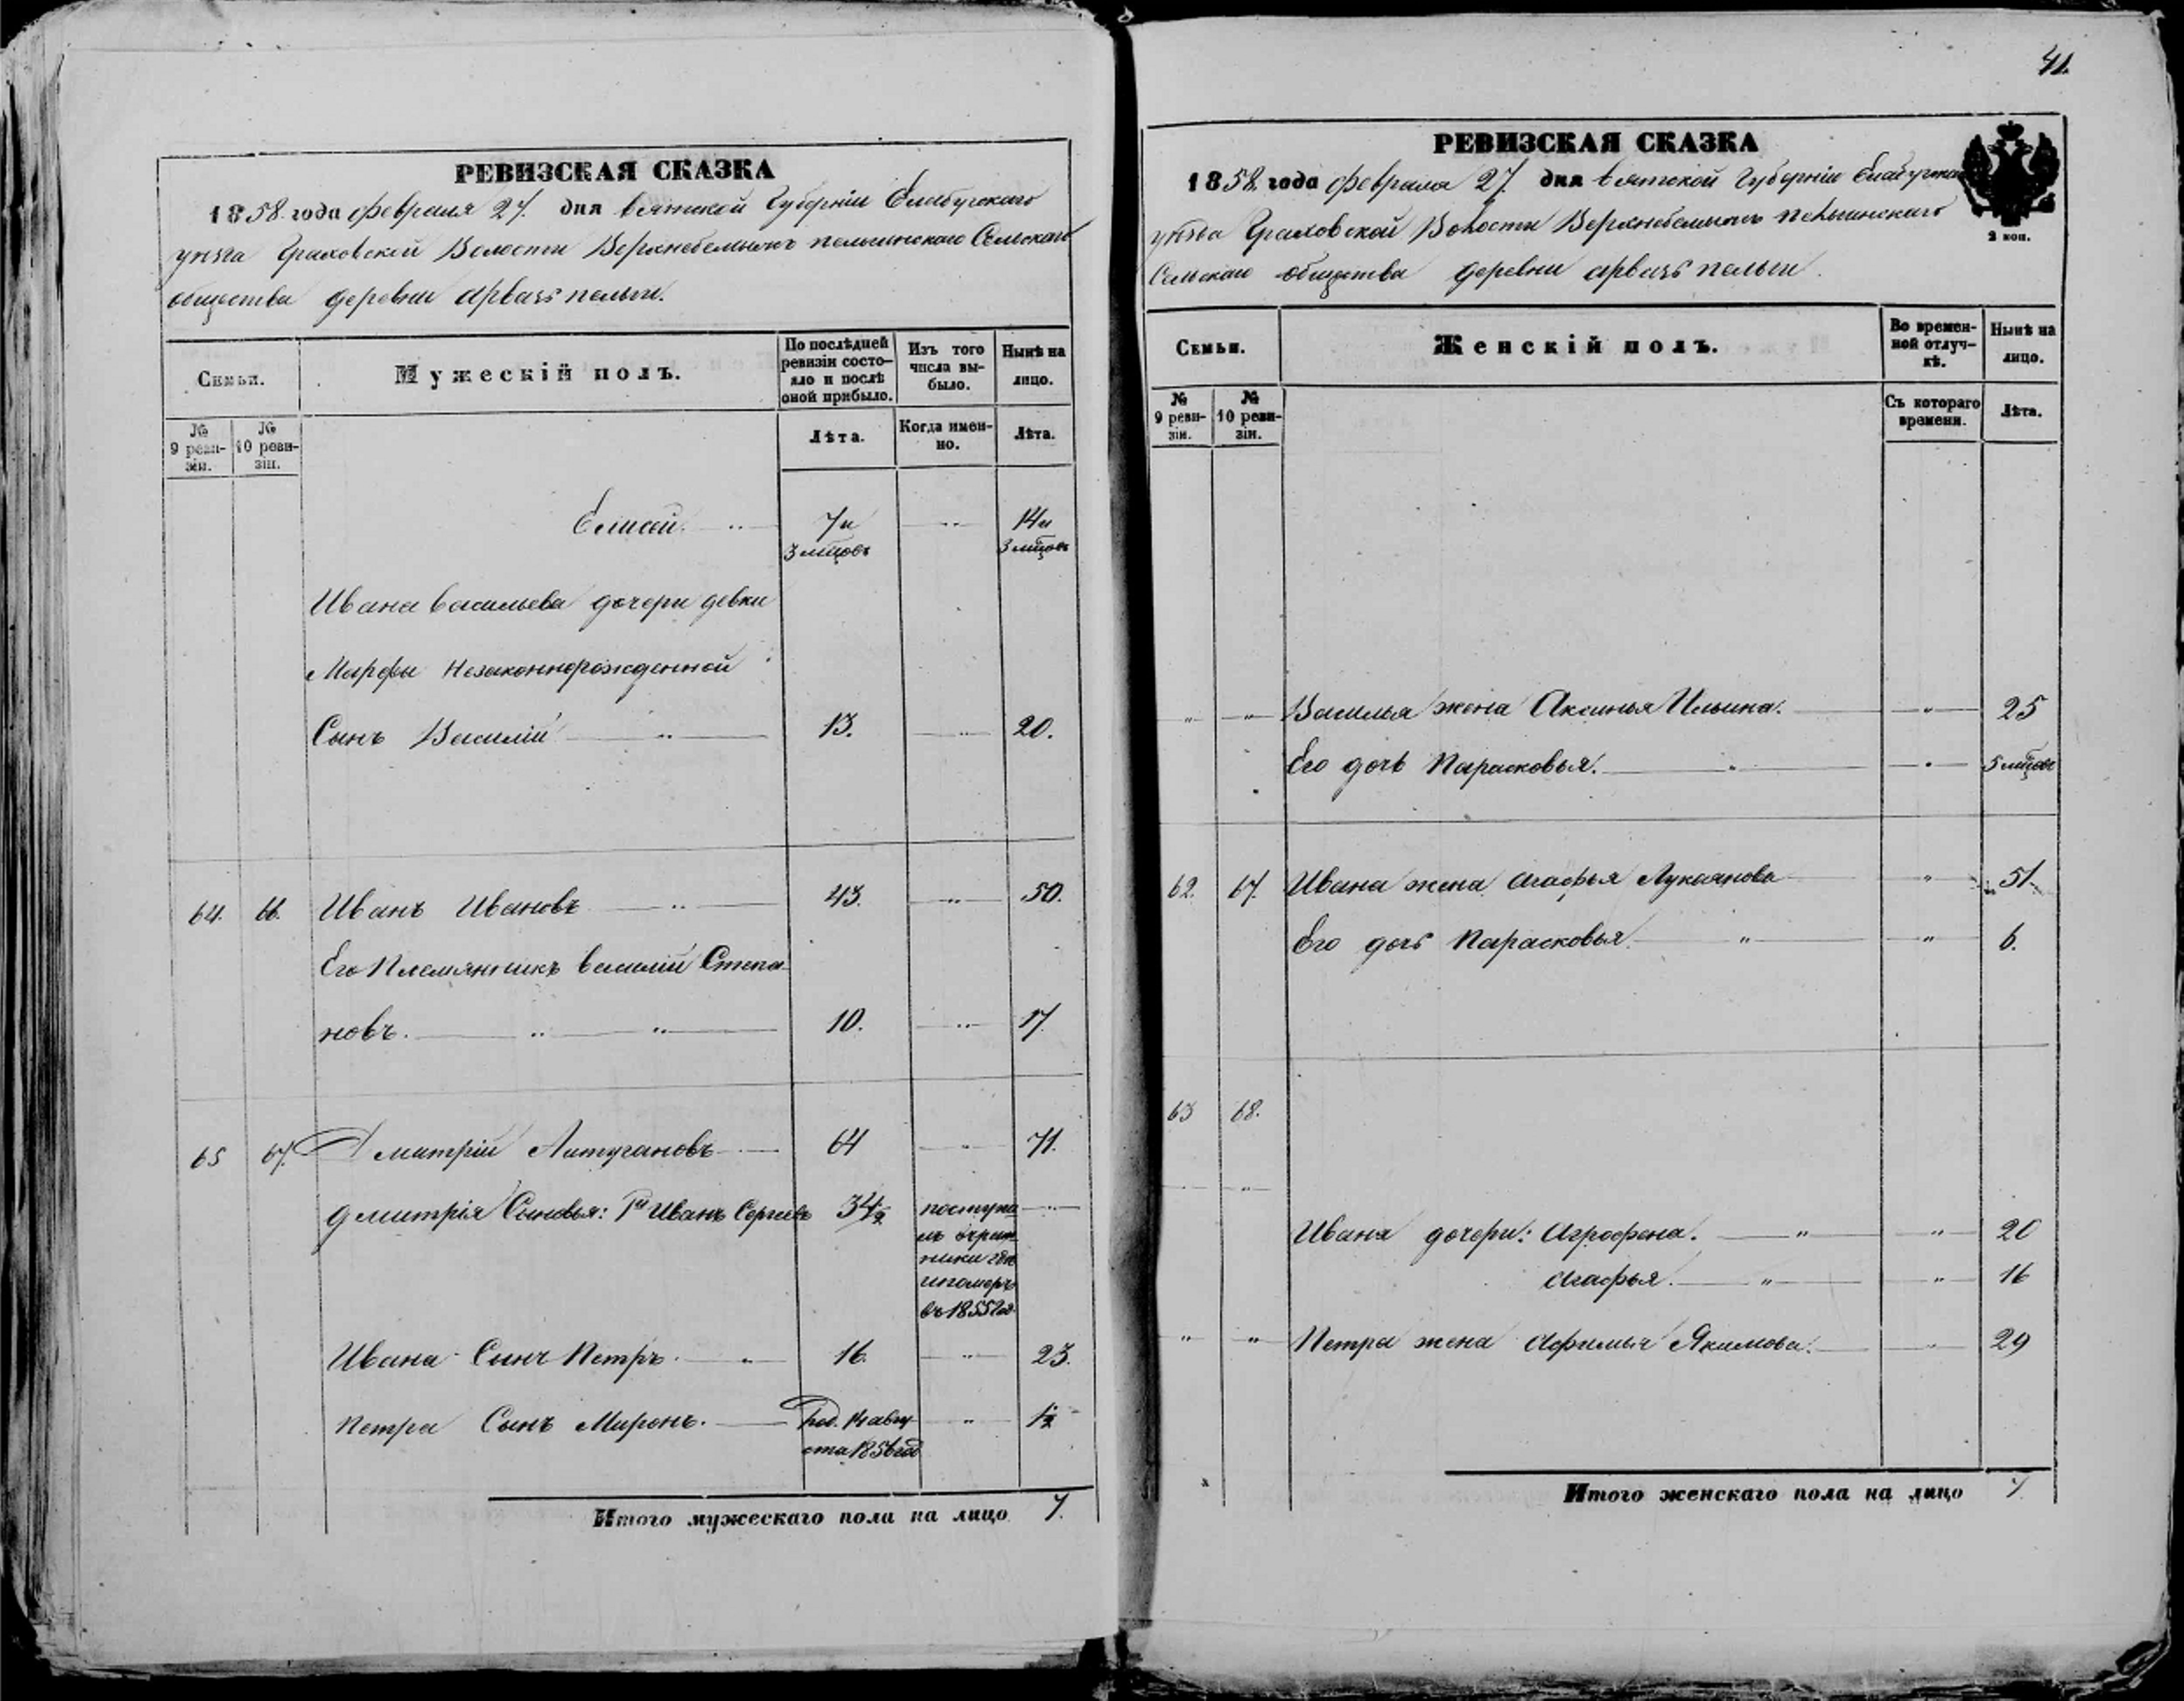 РЕВИЗСКАЯ СКАЗКА
1858. года февраля 27. дня вятской Губернiи Елабугскаго
уѣзда Граховской Волости Верхнебемыжъ пельгинскаго Сельскаго
общества деревни арвазь пельги.
Семьи.
Мужескiй полъ.
По послѣдней ревизiи состо-
яло и послѣ
оной прибыло.
Изъ того
числа вы-
было.
Нынѣ на
лицо.
№
9 реви-
зiи.
№
10 реви-
зiи.
Лѣта.
Когда имен-
но.
Лѣта.
Елисей. 7 и 14 и
3 мцовъ 3 мцовъ
Ивана васильева дочери девки
Марфы Незаконнорожденной
Сынъ Василiй 13. 20.
64. 66. Иванъ Ивановъ 43. 50.
Его Племянникъ василiй Степа-
новъ. 10. 17
65 67. Дмитрiй Латугановъ 64 71.
дмитрiя Сыновья: 1й Иванъ Сергеевъ 34½ поступи
въ 1855 год
Ивана Сынъ Петръ. 16. 23.
Петра Сынъ Миронъ. Род. 14 авгу 1½
ста 1856 год
Итого мужескаго пола на лицо 7.
41.
РЕВИЗСКАЯ СКАЗКА
1858. года февраля 27. дня вятской Губернiи Елабугска
уѣзда Граховской Волости Верхнебемыжъ пельгинскаго
Сельскаго общества деревни арвазь пельги.
2 коп.
Семьи.
Женскiй полъ.
Во времен-
ной отлуч-
кѣ.
Нынѣ на
лицо.
№
9 реви-
зiи.
№
10 реви-
зiи.
Съ котораго
времени.
Лѣта.
" " Василья жена Аксинья Ильина. " 25
Его дочь Парасковья. " 5 мцовъ
62. 67. Ивана жена агафья Лукоянова " 51.
Его дочь Парасковья. " " 6.
63 68.
Ивана дочери: Агрофена. " " 20
агафья. " " 16
" " Петра жена Афимья Якимова. " 29
Итого женскаго пола на лицо 7.